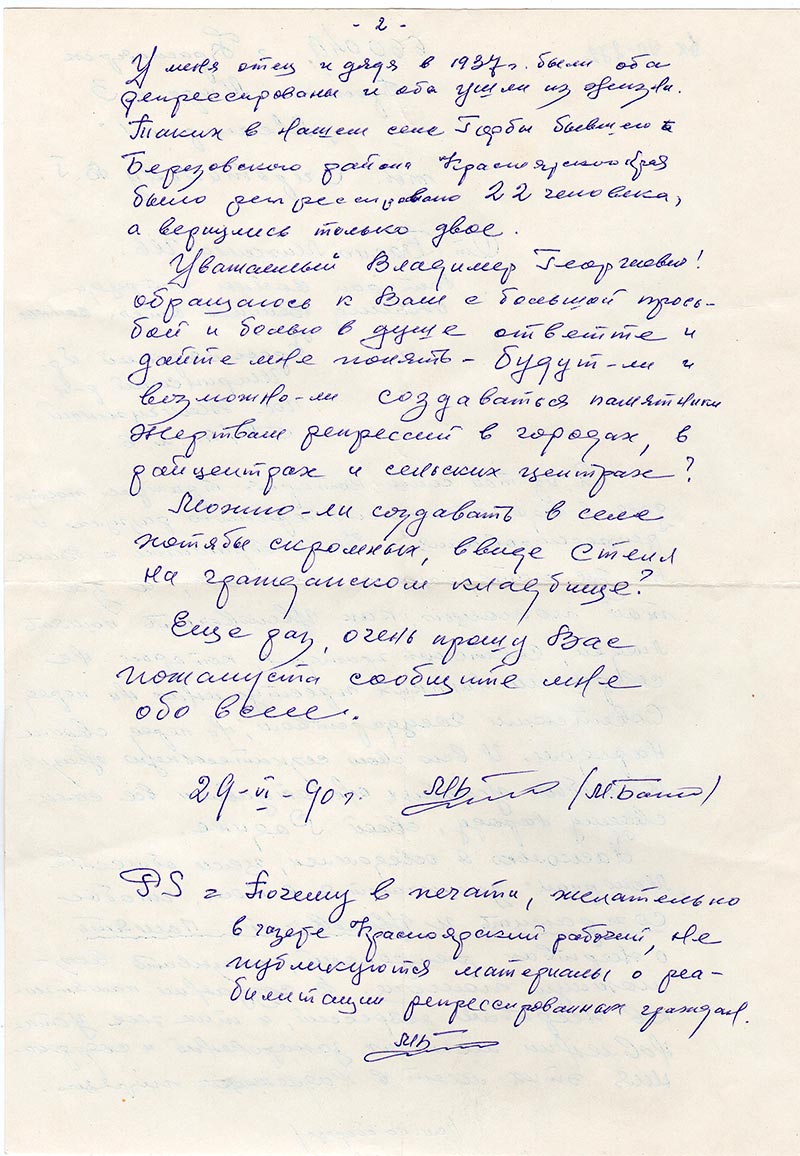 - 2 -
У меня отец и дядя в 1937 г. были оба
репрессированы и оба ушли из жизни.
Таких в нашем селе Горбы бывшего
Березовского района Красноярского края
было репрессировано 22 человека,
а вернулись только двое.
Уважаемый Владимер Георгиевич!
обращаюсь к Вам с большой прось-
бой и болью в душе ответте и
дайте мне понять - будут-ли и
возможно-ли создаваться памятники
Жертвам репрессий в городах, в
райцентрах и сельских центрах?
Можно-ли создавать в селе
хотябы скромных, ввиде Стелл
на гражданском кладбище?
Еще раз, очень прошу Вас
пожалуста сообщите мне
обо всем.
29-VI-90 г. МБ (М. )
PS = Почему в печати, желательно
в газете Красноярский рабочий, не
публикуются материалы о реа-
билитации репрессированных граждан.
МБ